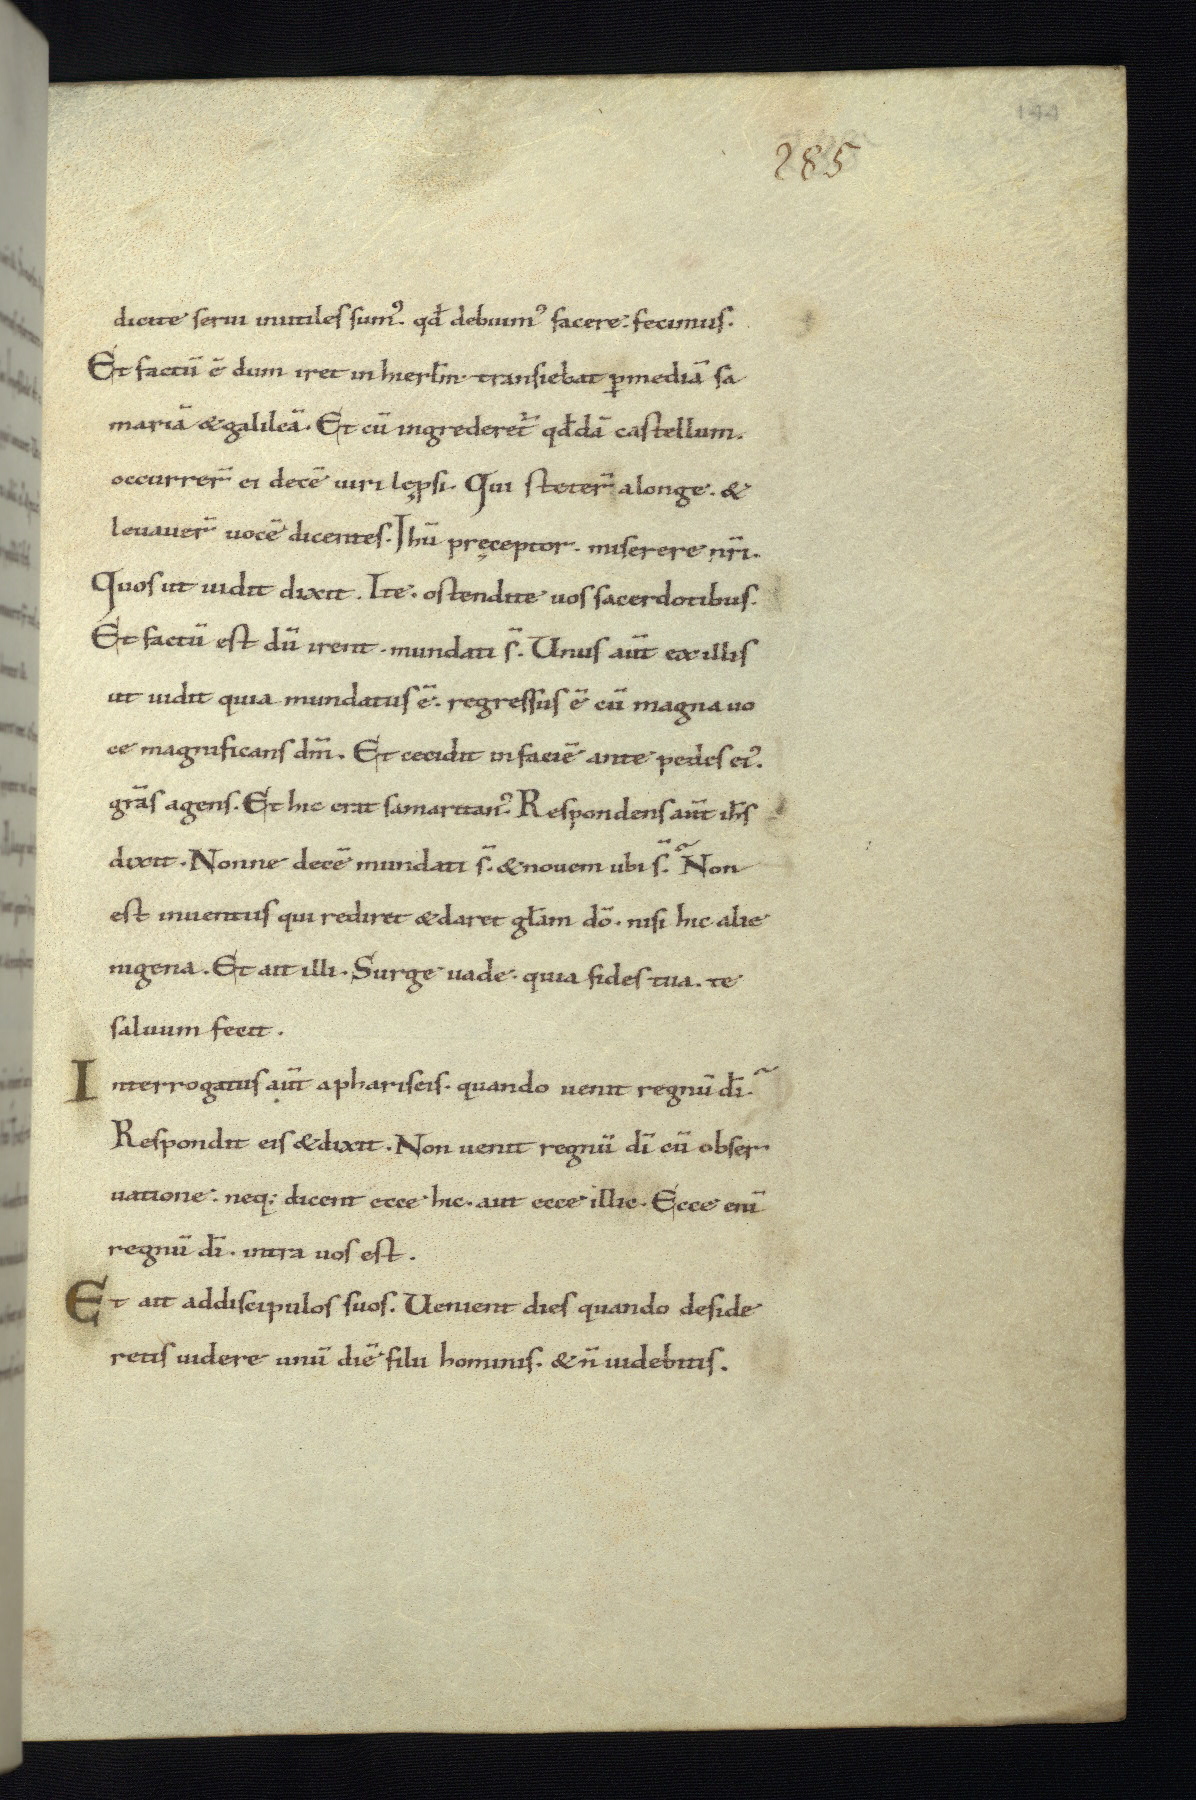 144
285
dicite serui inutiles sumꝰ. qđ debuimꝰ facere: fecimus.
Et factū ē dum iret in hierl̄m. transiebat ꝑ mediā sa
mariā & galileā. Et cū ingrederet᷒ qđdā castellum.
occurrer̄ ei decē uiri lępsi. Qui steter̄ alonge. &
leuauer̄ uocē dicentes. Ihū pręceptor. miserere nr̄i.
Quos ut uidit dixit. Ite. ostendite uos sacerdotibus.
Et factū est dū irent. mundati s̄. Unus aūt ex illis
ut uidit quia mundatus ē. regressus ē cū magna uo
ce magnificans dm̄. Et cecidit in faciē ante pedes eiꝰ.
grās agens. Et hic erat samaritanꝰ. Respondens aūt ih̄s
dixit. Nonne decē mundati s̄. & nouem ubi s̄.~ Non
est inuentus qui rediret & daret gl̄am dō. nisi hic alie
nigena. Et ait illi. Surge uade. quia fides tua. te
saluum fecit.
Interrogatus aūt a phariseis. quando uenit regnū dī.~
Respondit eis & dixit. Non uenit regnū dī cū obser
uatione. neq; dicent ecce hic. aut ecce illic. Ecce eni̅
regnū dī. intra uos est.
Et ait ad discipulos suos. Uenient dies quando deside
retis uidere unū diē filii hominis. & n̄ uidebitis.